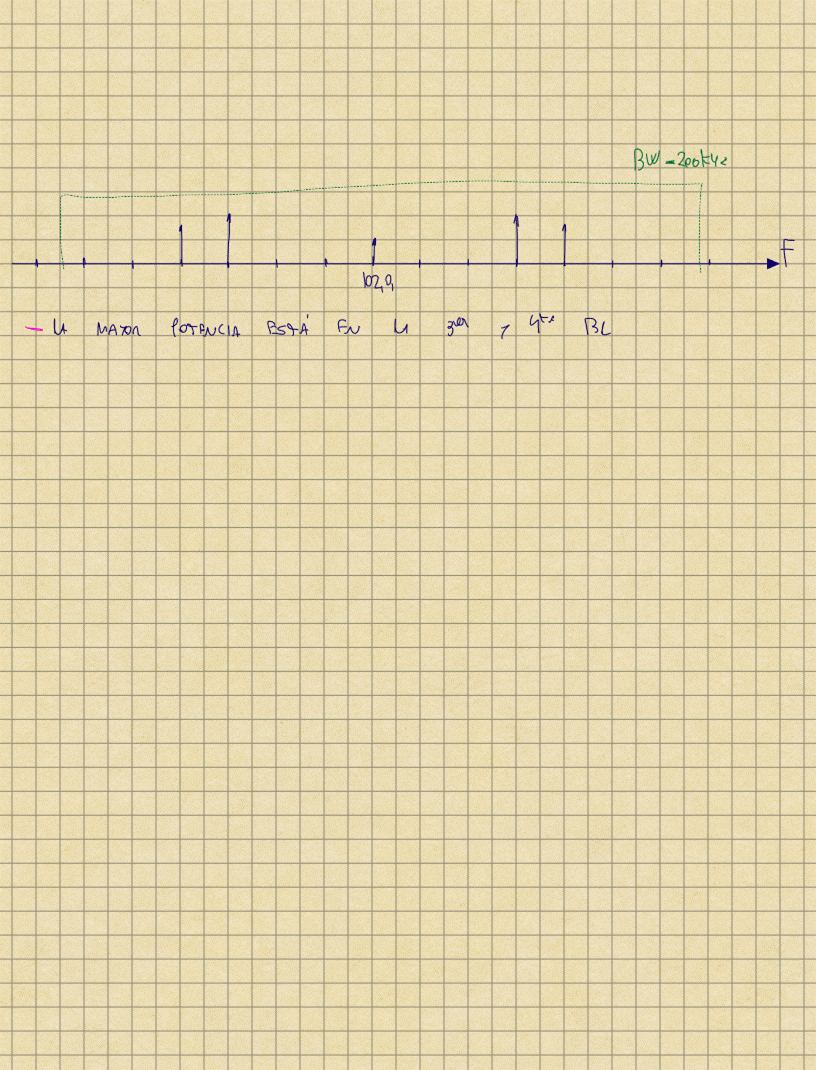 BW = 200 kHz
F
102,9
- LA MAYOR POTENCIA ESTÁ EN LA 3er y 4ta BL